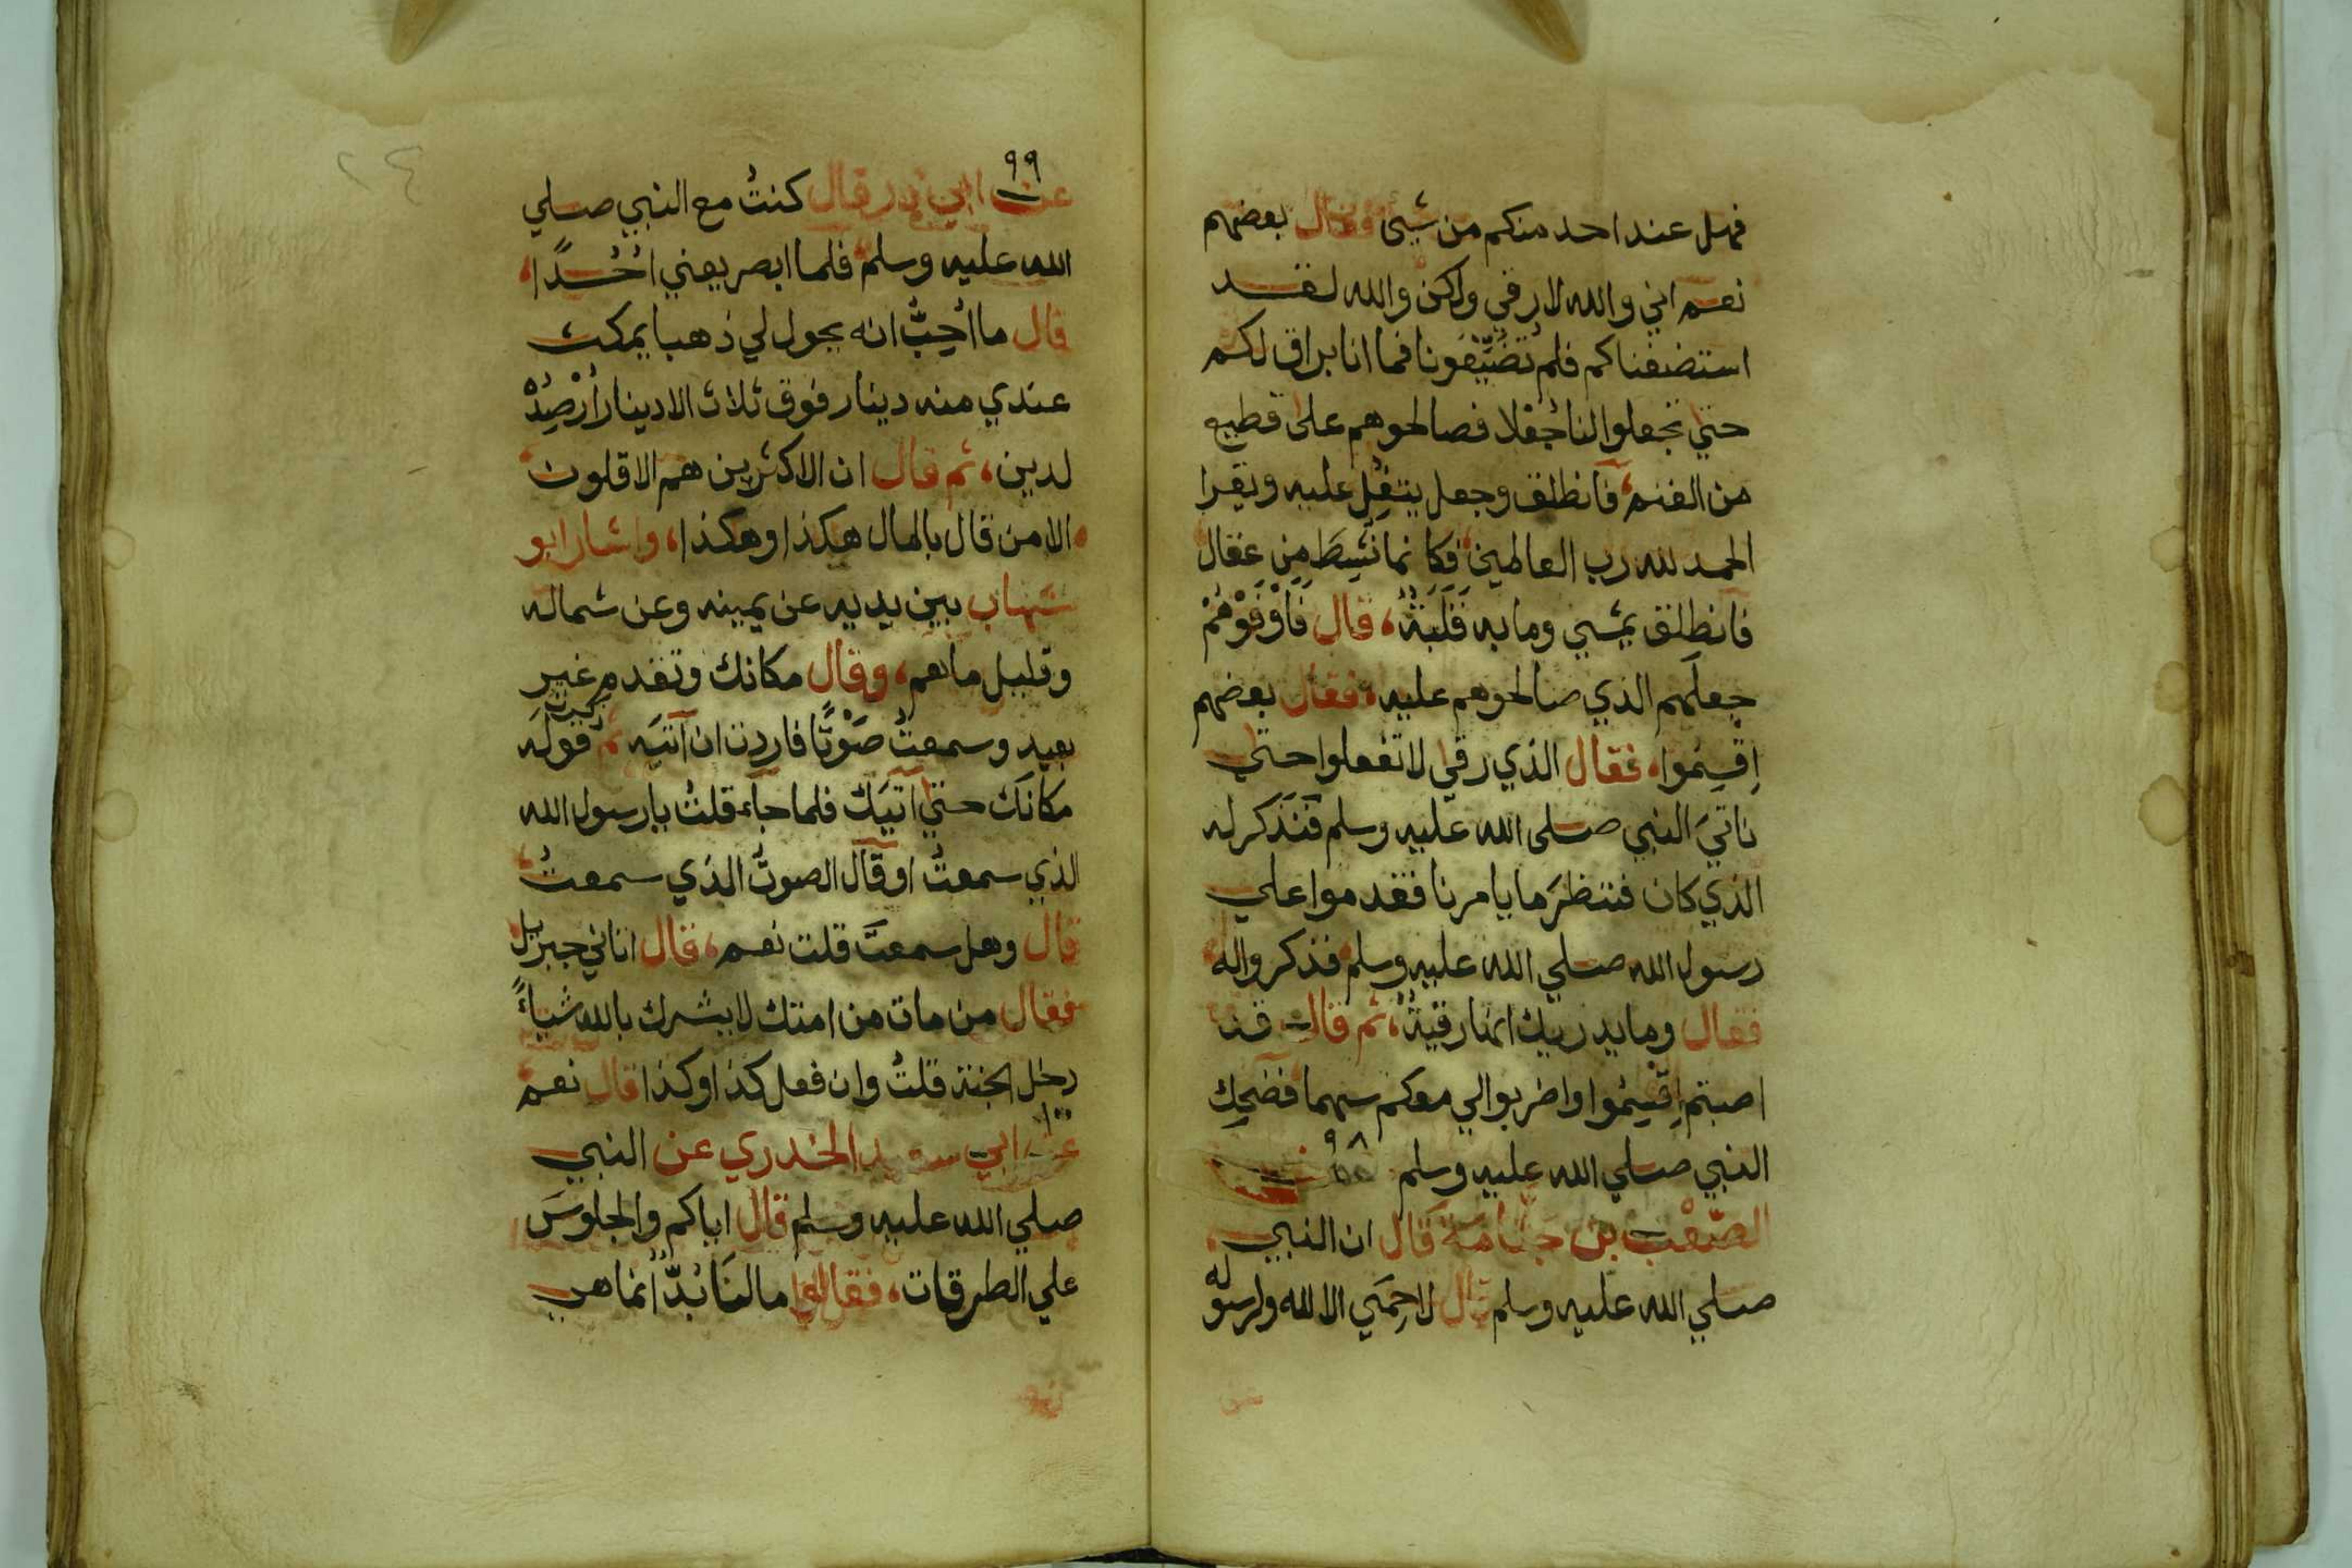 فهل عند احد منكم من شيئ فقال بعضهم
نعم اني والله لارقي ولكن والله لقد
استضفناكم فلم تُضَيِّفونا فما انا براق لكم
حتي تجعلوا لنا جُعْلا فصالحوهم علي قطيع
من الغنم فانطلق وجعل يتفِل عليه ويقرا
الحمد لله رب العالمين فكانما نُشِطَ مِن عقال
فانطلق يمشي وما به قَلَبَةٌ، قال فَاَوْفَوْهُمْ
جعلَهم الذي صالحوهم عليه، فقال بعضهم
اِقْسِمُوا، فقال الذي رقي لا تفعلوا حتي
ناتيَ النبي صلي الله عليه وسلم فَنَذكر له
الذي كان فننظرَ ما يامرنا فقدموا علي
رسول الله صلي الله عليه وسلم فذكروا له
فقال وما يدريك انها رقيةٌ، ثم قال قد
اصبتم اِقْسِمُوا واضربوا لي معكم سهما فضحِك
النبي صلي الله عليه وسلم ٩٨ عن
الصَّعْبِ بن جَثَّامَةَ قال ان النبي
صلي الله عليه وسلم قال لا حِمَي الا لله ولرسوله
٩٩
عن ابي ذر قال كنتُ مع النبي صلي
الله عليه وسلم فلما ابصر يعني اُحُدًا،
قال ما اُحِبُّ انه يحول لي ذهبا يمكث
عندي منه دينار فوق ثلاث الا دينار اُرْصِدُهُ
لدين، ثم قال ان الاكثرين هم الاقلون
الا من قال بالمال هكذا وهكذا، واشار ابو
شهاب بين يديه عن يمينه وعن شماله
وقليل ما هم، وقال مكانك وتقدم غير
بعيد وسمعتُ صَوْتًا فاردت ان آتيَه ثم ذكرت قولَه
مكانَك حتي آتيَك فلما جآء قلتُ يا رسول الله
الذي سمعتُ او قال الصوتُ الذي سمعتُ
قال وهل سمعتَ قلت نعم، قال اتاني جبريل
فقال من مات من امتك لا يشرك بالله شياءً
دخل الجنة قلتُ وان فعل كذا وكذا قال نعم
١٠٠
عن ابي سعيد الخدري عن النبي
صلي الله عليه وسلم قال اياكم والجلوسَ
علي الطرقات، فقالوا ما لنا بُدٌّ انما هي